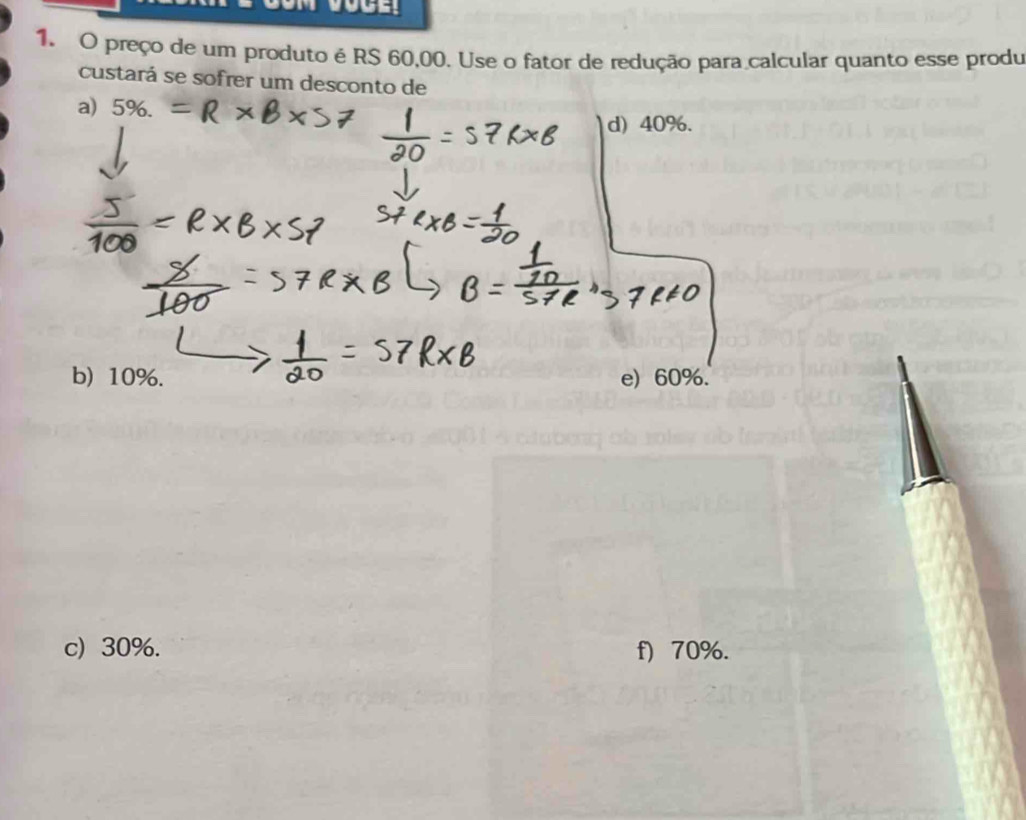 1. O preço de um produto é R$ 60,00. Use o fator de redução para calcular quanto esse produ
custará se sofrer um desconto de
a) 5%. = R × B × 57
1/20 = 57 R×B
d) 40%.
5/100 = R × B × 57
57 R×B = 1/20
5/100 = 57 R × B
B = 1/20/57R , 57R≠0
1/20 = 57 R×B
b) 10%.
e) 60%.
c) 30%.
f) 70%.